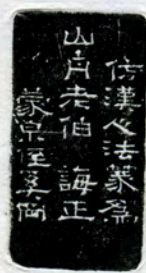 仿漢人法篆爲
山舟老伯 誨正
蒙泉侄奚岡